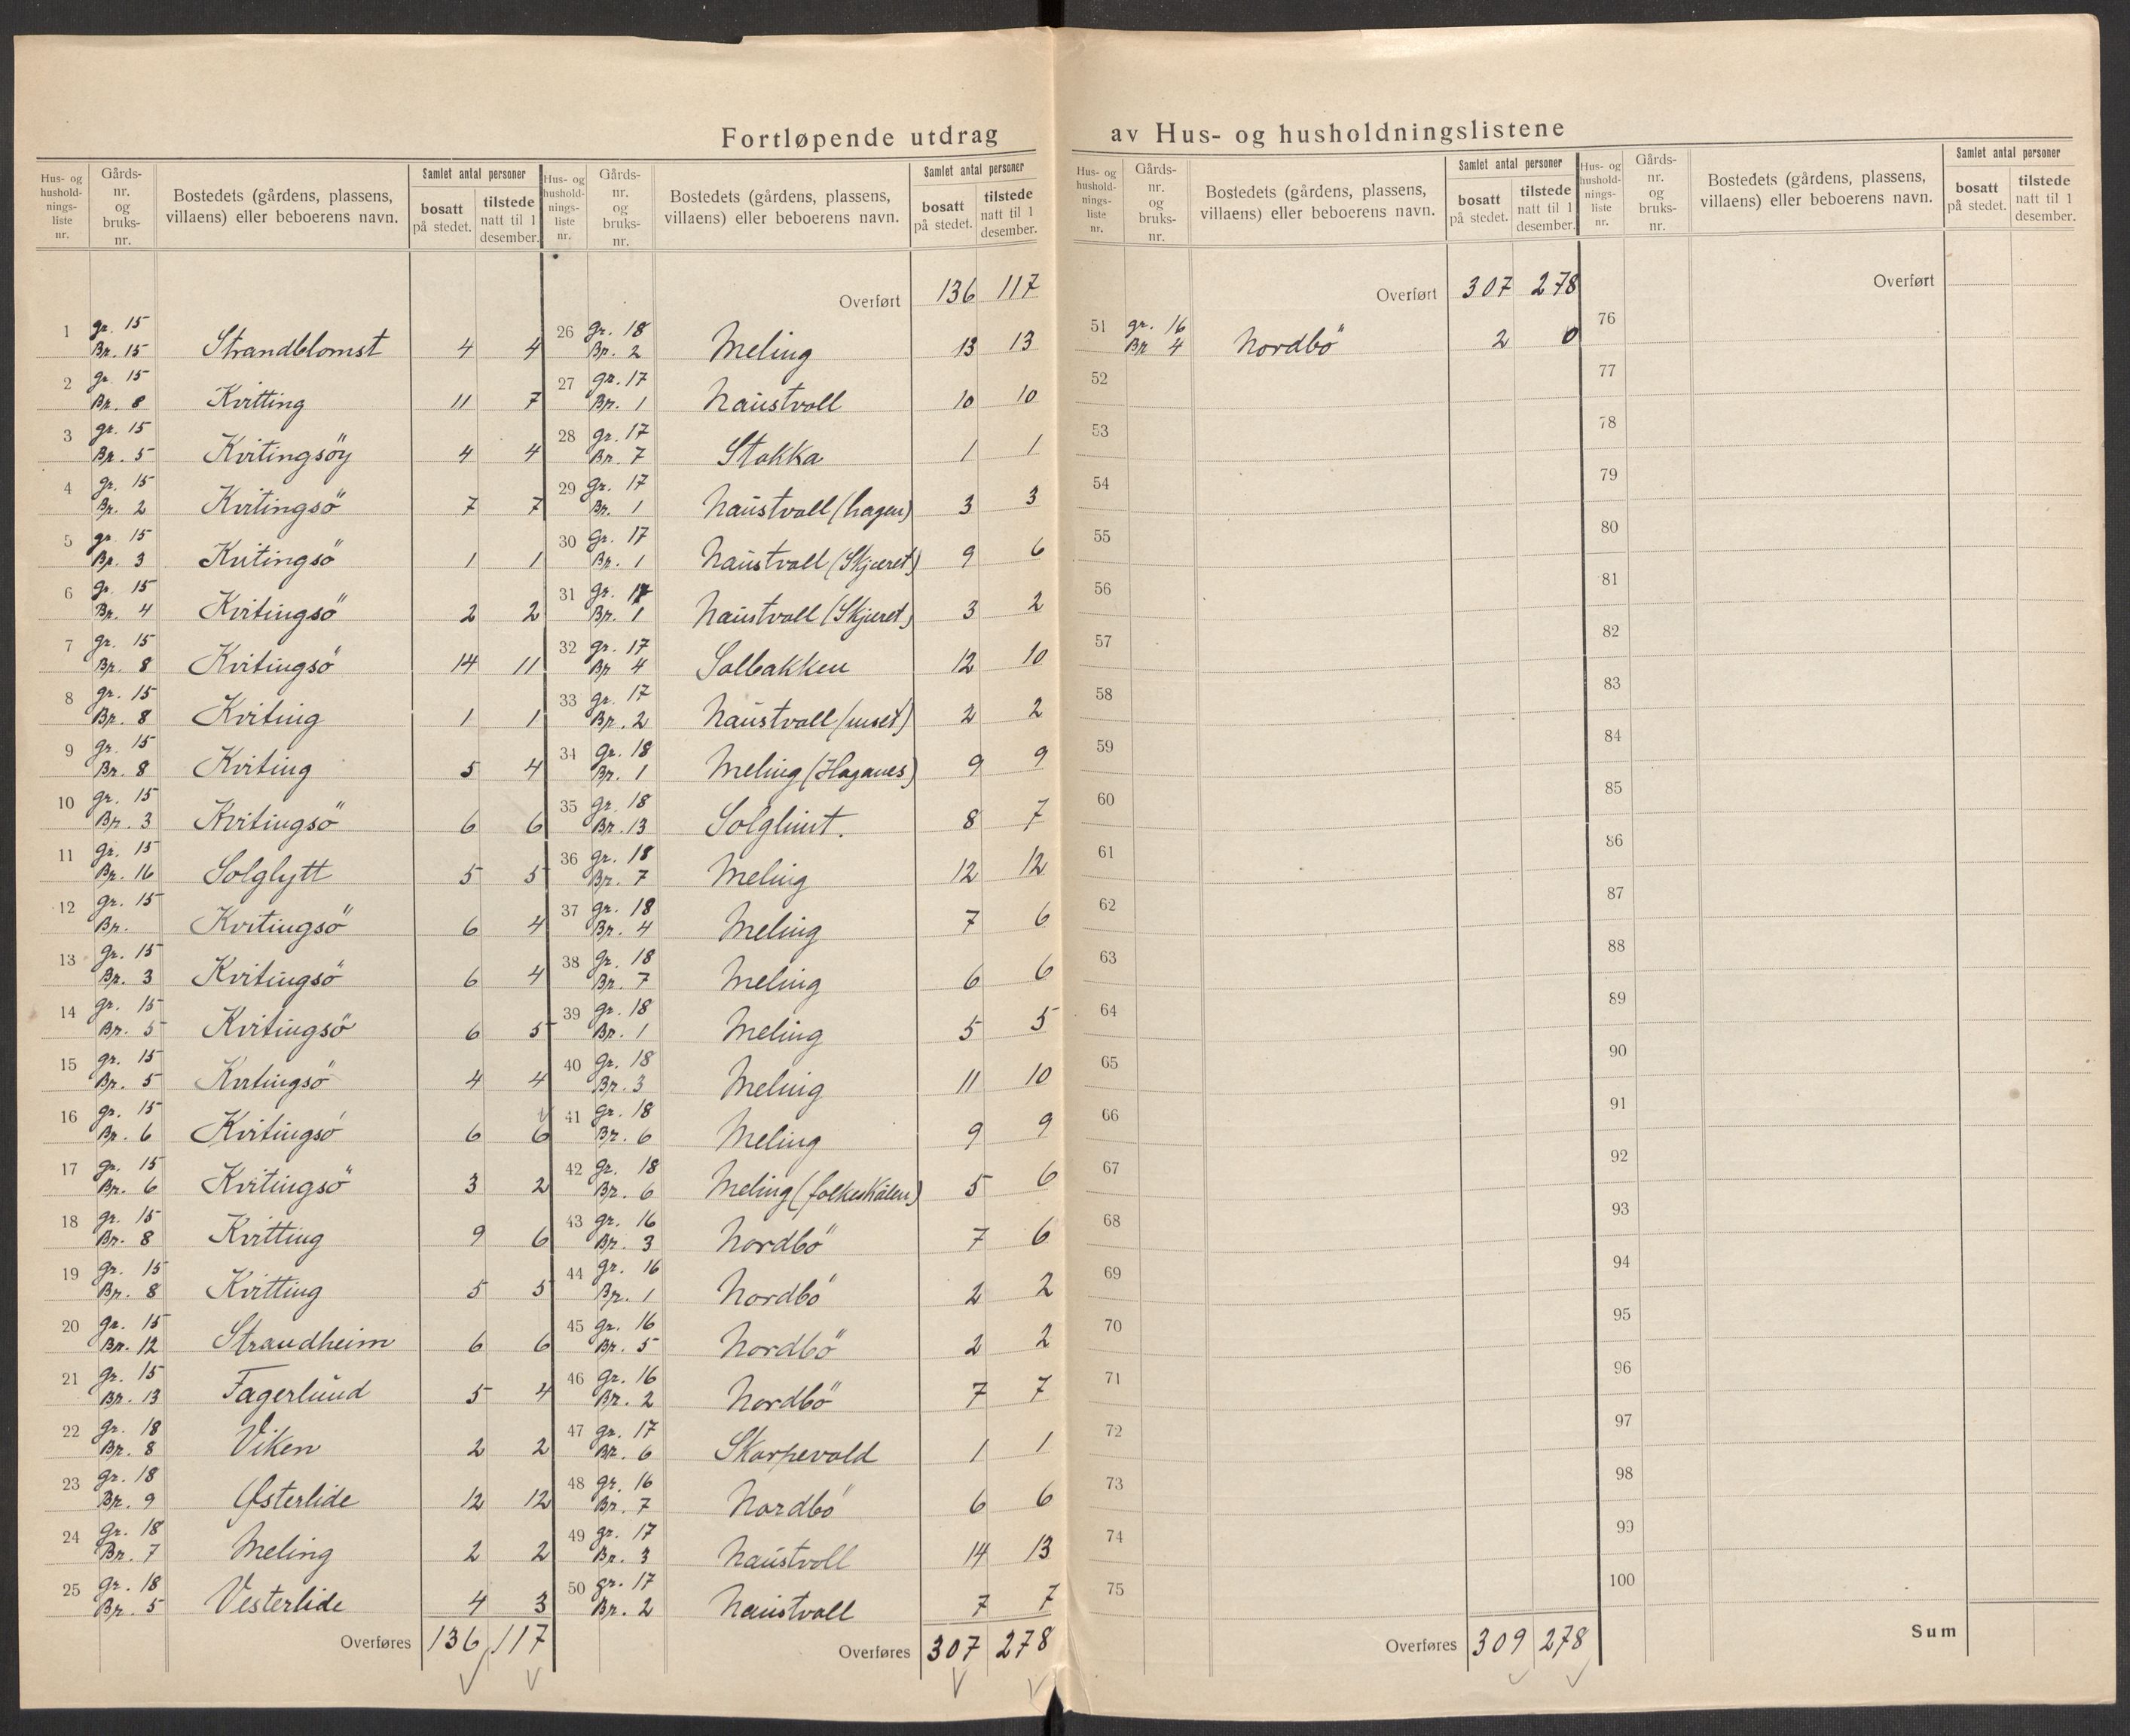 Fortløpende utdrag av Hus- og husholdningslistene
Hus- og husholdnings-liste nr. | Gårds-nr. og bruks-nr. | Bostedets (gårdens, plassens, villaens) eller beboerens navn. | Samlet antal personer | bosatt på stedet. | tilstede natt til 1 desember.
1 gr. 15 Br. 15 Strandblomst 4 4
2 gr. 15 Br. 8 Kvitting 11 7
3 gr. 15 Br. 5 Kvitingsöy 4 4
4 gr. 15 Br. 2 Kvitingsö 7 7
5 gr. 15 Br. 3 Kvitingsö 1 1
6 gr. 15 Br. 4 Kvitingsö 2 2
7 gr. 15 Br. 8 Kvitingsö 14 11
8 gr. 15 Br. 8 Kviting 1 1
9 gr. 15 Br. 8 Kviting 5 4
10 gr. 15 Br. 3 Kvitingsö 6 6
11 gr. 15 Br. 16 Solglytt 5 5
12 gr. 15 Br. Kvitingsö 6 4
13 gr. 15 Br. 3 Kvitingsö 6 4
14 gr. 15 Br. 5 Kvitingsö 6 5
15 gr. 15 Br. 5 Kvitingsö 4 4
16 gr. 15 Br. 6 Kvitingsö 6 6
17 gr. 15 Br. 6 Kvitingsö 3 2
18 gr. 15 Br. 8 Kvitting 9 6
19 gr. 15 Br. 8 Kvitting 5 5
20 gr. 15 Br. 12 Strandheim 6 6
21 gr. 15 Br. 13 Fagerlund 5 4
22 gr. 18 Br. 8 Viken 2 2
23 gr. 18 Br. 9 Østerlide 12 12
24 gr. 18 Br. 7 Meling 2 2
25 gr. 18 Br. 5 Vesterlide 4 3
Overføres 136 117
Hus- og husholdnings-liste nr. | Gårds-nr. og bruks-nr. | Bostedets (gårdens, plassens, villaens) eller beboerens navn. | Samlet antal personer | bosatt på stedet. | tilstede natt til 1 desember.
Overført 136 117
26 gr. 18 Br. 2 Meling 13 13
27 gr. 17 Br. 1 Naustvoll 10 10
28 gr. 17 Br. 7 Stokka 1 1
29 gr. 17 Br. 1 Naustvoll (hagen) 3 3
30 gr. 17 Br. 1 Naustvoll (Skjæret) 9 6
31 gr. 17 Br. 1 Naustvoll (Skjæret) 3 2
32 gr. 17 Br 4 Solbakken 12 10
33 gr. 17 Br. 2 Naustvoll 2 2
34 gr. 18 Br. 1 Meling (Haganes) 9 9
35 gr. 18 Br. 13 Solglimt. 8 7
36 gr. 18 Br. 7 Meling 12 12
37 gr. 18 Br. 4 Meling 7 6
38 gr. 18 Br. 7 Meling 6 6
39 gr. 18 Br. 1 Meling 5 5
40 gr. 18 Br. 3 Meling 11 10
41 gr. 18 Br. 6 Meling 9 9
42 gr. 18 Br. 6 Meling (folkeskålen) 5 6
43 gr. 16 Br. 3 Nordbö 7 6
44 gr. 16 Br. 1 Nordbö 2 2
45 gr. 16 Br. 5 Nordbö 2 2
46 gr. 16 Br. 2 Nordbö 7 7
47 gr. 17 Br. 6 Skarpevold 1 1
48 gr. 16 Br. 7 Nordbö 6 6
49 gr. 17 Br. 3 Naustvoll 14 13
50 gr. 17 Br. 2 Naustvoll 7 7
Overføres 307 278
Hus- og husholdnings-liste nr. | Gårds-nr. og bruks-nr. | Bostedets (gårdens, plassens, villaens) eller beboerens navn. | Samlet antal personer | bosatt på stedet. | tilstede natt til 1 desember.
Overført 307 278
51 gr. 16 Br 4 Nordbö 2 0
52
53
54
55
56
57
58
59
60
61
62
63
64
65
66
67
68
69
70
71
72
73
74
75
Overføres 309 278
Hus- og husholdnings-liste nr. | Gårds-nr. og bruks-nr. | Bostedets (gårdens, plassens, villaens) eller beboerens navn. | Samlet antal personer | bosatt på stedet. | tilstede natt til 1 desember.
Overført
76
77
78
79
80
81
82
83
84
85
86
87
88
89
90
91
92
93
94
95
96
97
98
99
100
Sum